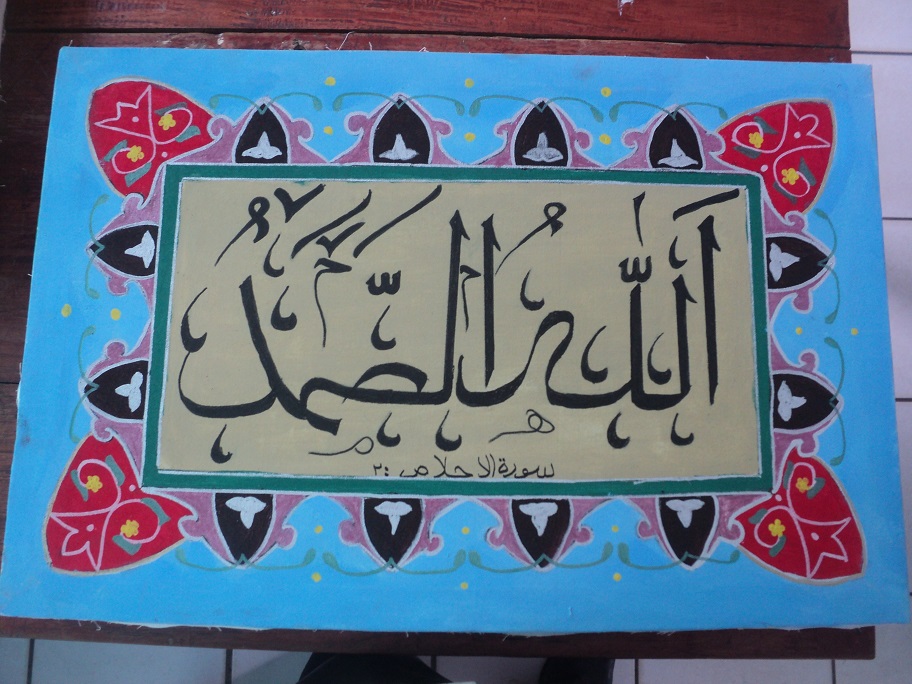 اللهُ الصَّمَدُ
سورة الاخلاص :٢